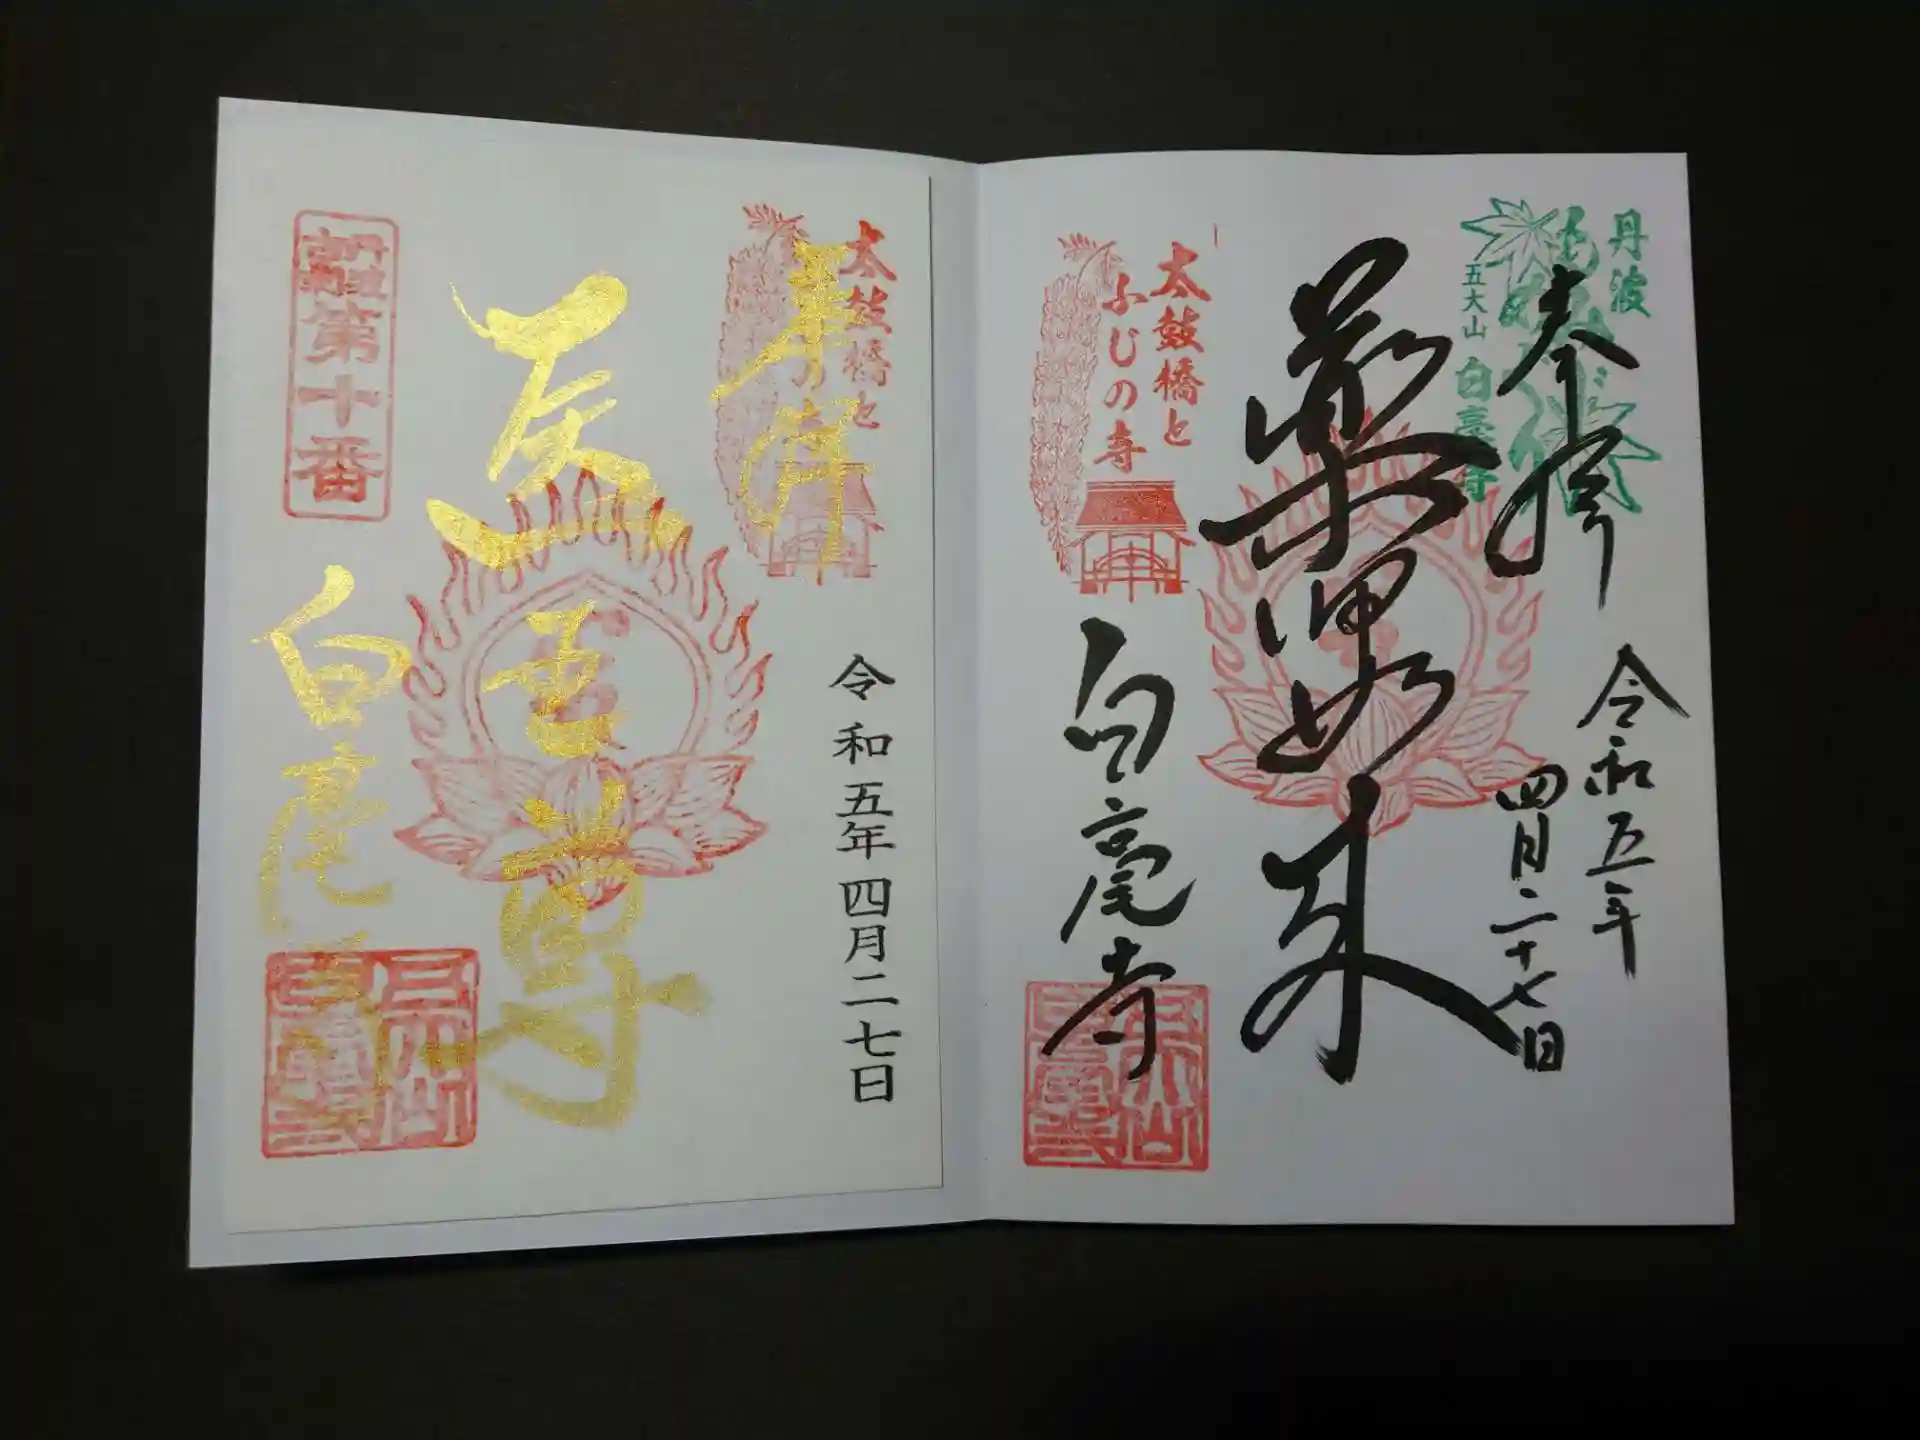 丹波
五大山 白毫寺
奉拝
令和五年
四月二十七日
薬師如来
太鼓橋と
ふじの寺
白毫寺
奉拝
太鼓橋と
令和五年四月二七日
医王尊
第十番
白毫寺